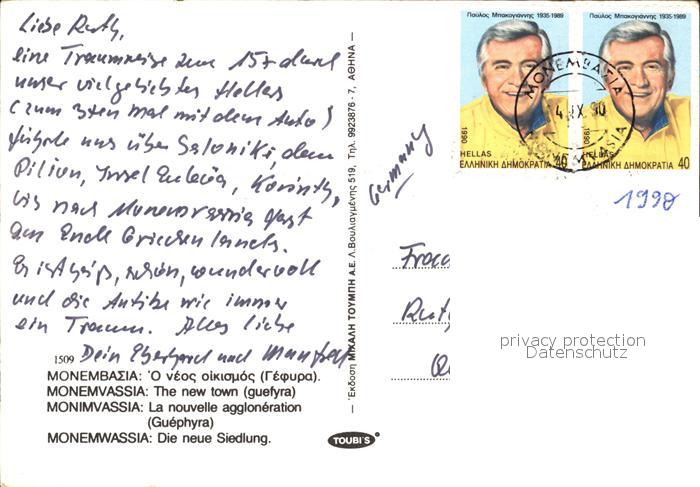 Liebe Ruth,
eine Traumreise zum 15ten durch
unser vielgeliebtes Hellas
(zum 3ten Mal mit dem Auto)
führte uns über Saloniki, dem
Pilion, Insel Euböa, Korinth,
bis nach Monemvassia fast
am Ende Griechenlands.
Es ist heiß, schön, wundervoll
und die Antike wie immer
ein Traum. Alles Liebe
Dein Eberhard und Manfred
1509
ΜΟΝΕΜΒΑΣΙΑ: Ὁ νέος οἰκισμός (Γέφυρα).
MONEMVASSIA: The new town (guefyra)
MONIMVASSIA: La nouvelle agglonération
(Guéphyra)
MONEMWASSIA: Die neue Siedlung.
— Ἔκδοση ΜΙΧΑΛΗ ΤΟΥΜΠΗ Α.Ε. Λ.Βουλιαγμένης 519, Τηλ. 9923876 - 7, ΑΘΗΝΑ —
TOUBI'S
Παύλος Μπακογιάννης 1935-1989
1990
HELLAS
ΕΛΛΗΝΙΚΗ ΔΗΜΟΚΡΑΤΙΑ 40
Παύλος Μπακογιάννης 1935-1989
1990
HELLAS
ΕΛΛΗΝΙΚΗ ΔΗΜΟΚΡΑΤΙΑ 40
ΜΟΝΕΜΒΑΣΙΑ
4 IX 90
Germany
1990
Frau
Ruth
privacy protection
Datenschutz